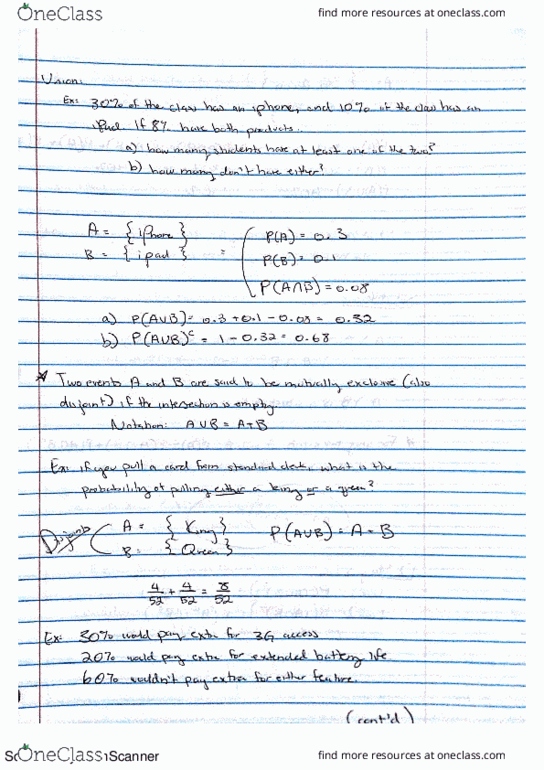 OneClass find more resources at oneclass.com
Union:
Ex: 30% of the class has an iphone, and 10% of the class has an
ipad. If 8% have both products..
a) how many students have at least one of the two?
b) how many don't have either?
A = { iPhone } P(A) = 0.3
B = { ipad } = P(B) = 0.1
P(A∩B) = 0.08
a) P(A∪B) = 0.3 + 0.1 - 0.08 = 0.32
b) P(A∪B)ᶜ = 1 - 0.32 = 0.68
* Two events A and B are said to be mutually exclusive (also
disjoint) if the intersection is empty
Notation: A∪B = A+B
Ex: if you pull a card from standard deck, what is the
probability of pulling either a king or a queen?
Disjoint A = { King } P(A∪B) = A + B
B = { Queen }
4/52 + 4/52 = 8/52
Ex: 30% would pay extra for 3G access
20% would pay extra for extended battery life
60% wouldn't pay extra for either feature.
(cont'd)
OneClass Scanner find more resources at oneclass.com